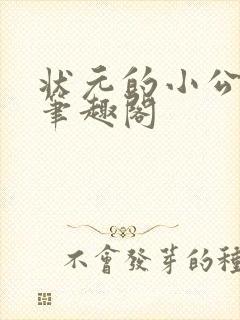 状元的小公
筆趣閣
不會發芽的種